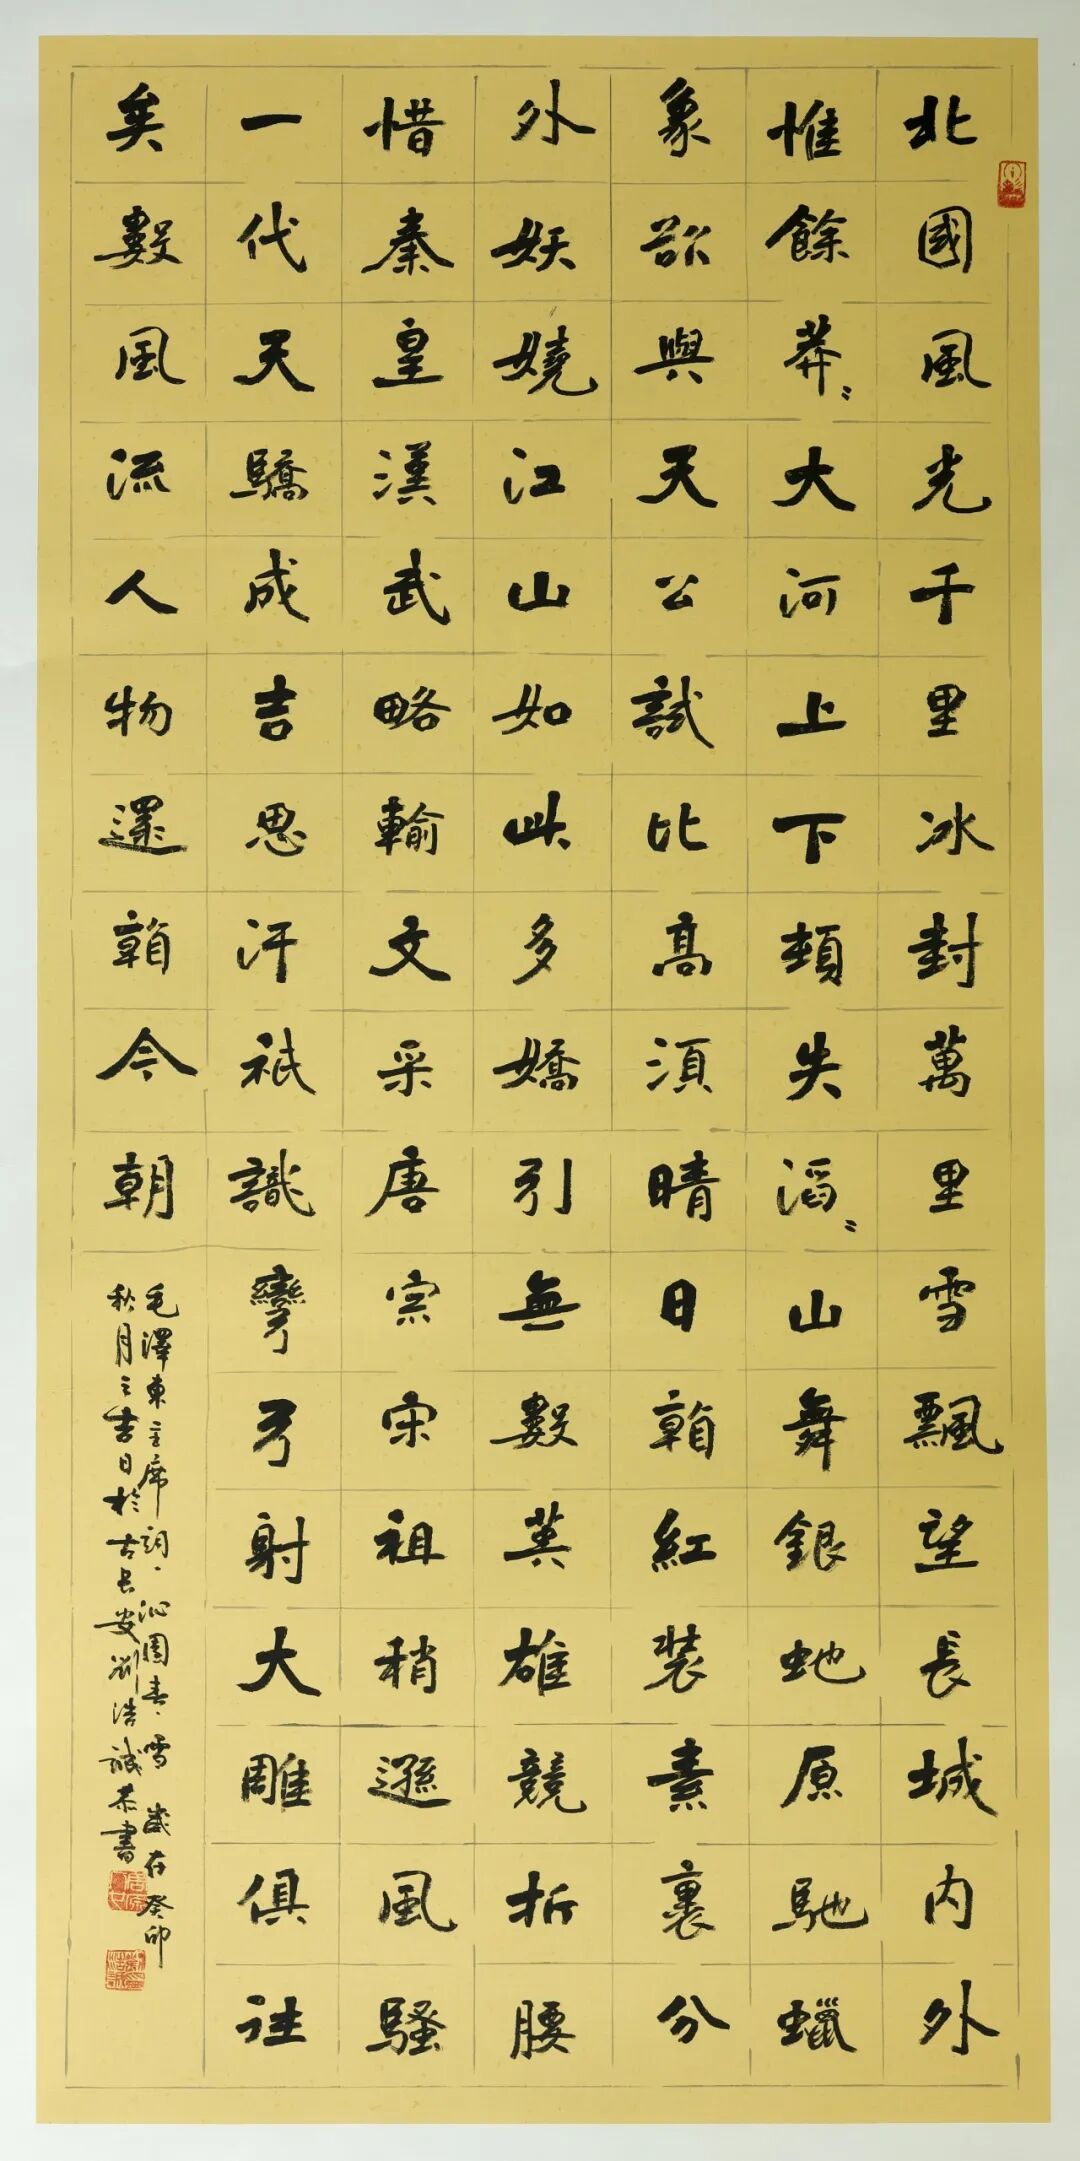 北國風光千里冰封萬里雪飄望長城内外
惟餘莽〻大河上下頓失滔〻山舞銀虵原馳蠟
象欲與天公試比高須晴日看紅裝素裹分
外妖嬈江山如此多嬌引無數英雄競折腰
惜秦皇漢武略輸文采唐宗宋祖稍遜風騷
一代天驕成吉思汗祇識彎弓射大雕俱往
矣數風流人物還看今朝
毛澤東主席詞、沁園春、雪 歲在癸卯
秋月之吉日於古長安劉浩誠恭書